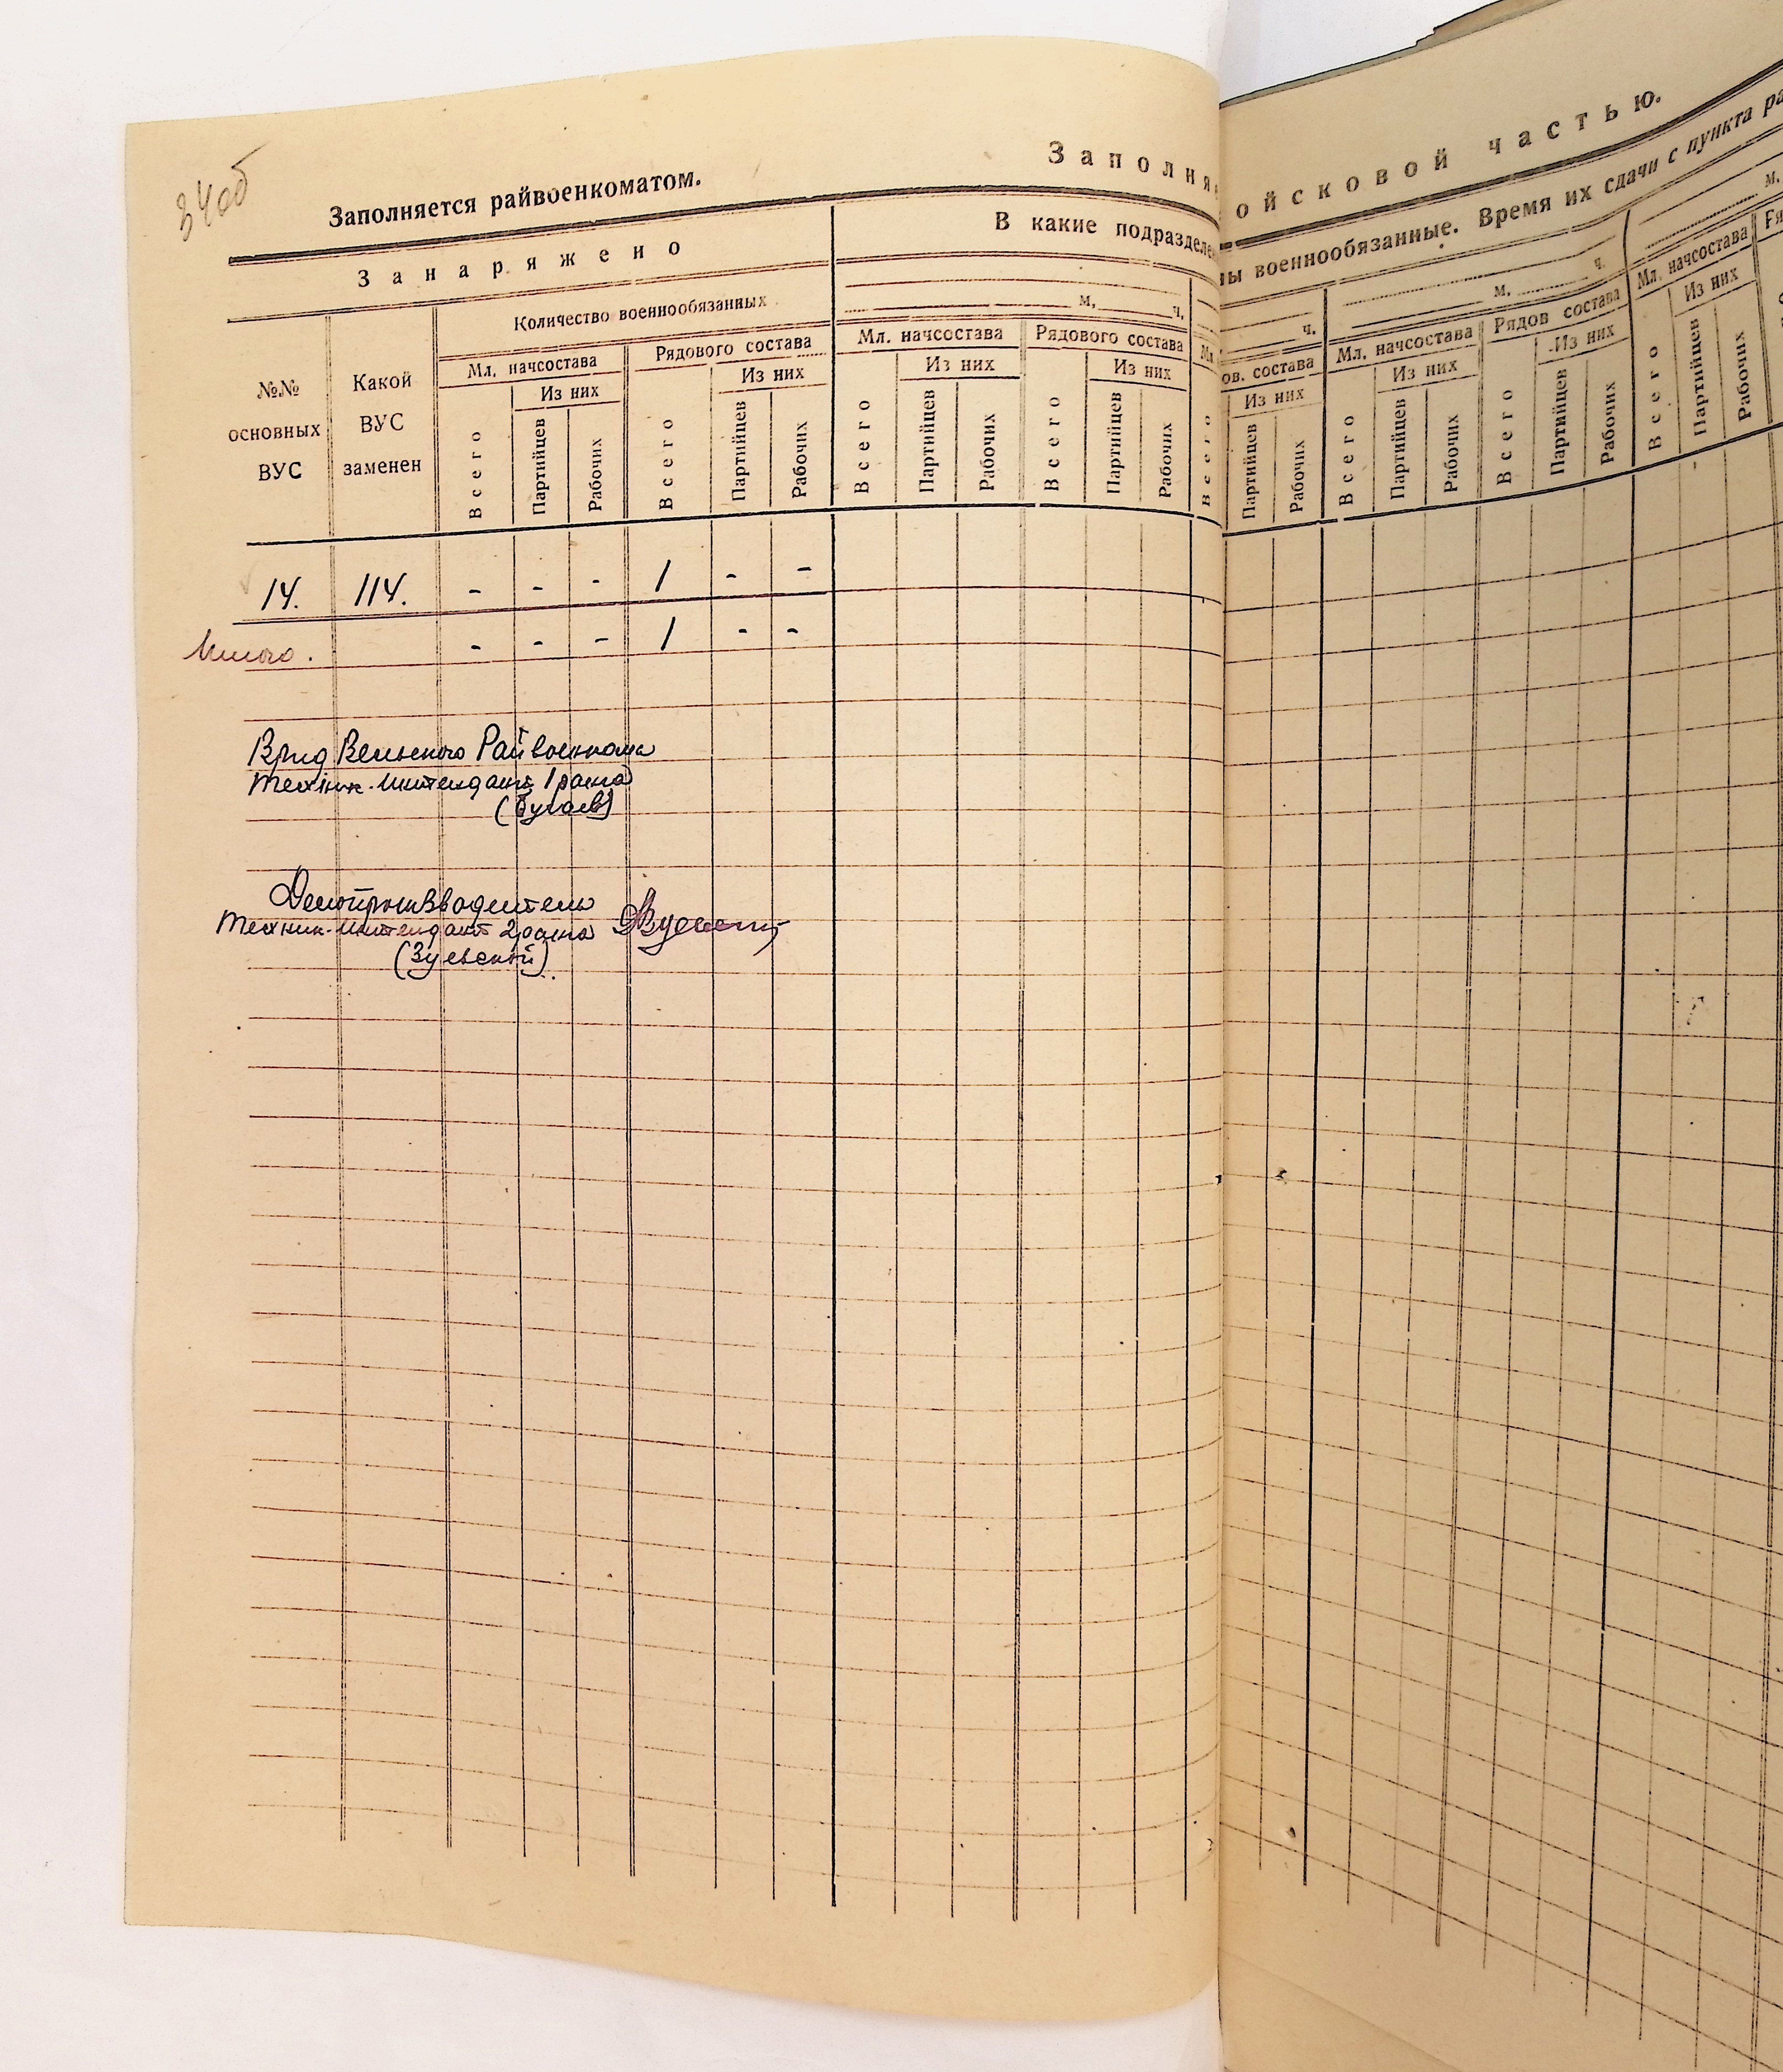 34об
Заполняется райвоенкоматом.
Заполня
ойсковой частью.
Занаряжено
В какие подразделе
ны военнообязанные. Время их сдачи с пункта ра
№№ основных ВУС
Какой ВУС заменен
Количество военнообязанных
м. ч.
ч.
м. ч.
м.
Мл. начсостава
Рядового состава
Мл. начсостава
Рядового состава
Мл.
ов. состава
Мл. начсостава
Рядов состава
Мл. начсостава
Ря
Из них
Из них
Из них
Из них
Из них
Из них
Из них
Из них
Всего Партийцев Рабочих Всего Партийцев Рабочих Всего Партийцев Рабочих Всего Партийцев Рабочих Всего
Партийцев Рабочих Всего Партийцев Рабочих Всего Партийцев Рабочих Всего Партийцев Рабочих
14. 114. - - - 1 - -
Итого. - - - 1 - -
Врид Вельского Райвоенкома
техник-интендант 1 ранга
(Бугаев)
Делопроизводитель
техник-интендант 2 ранга
(Зуевский).